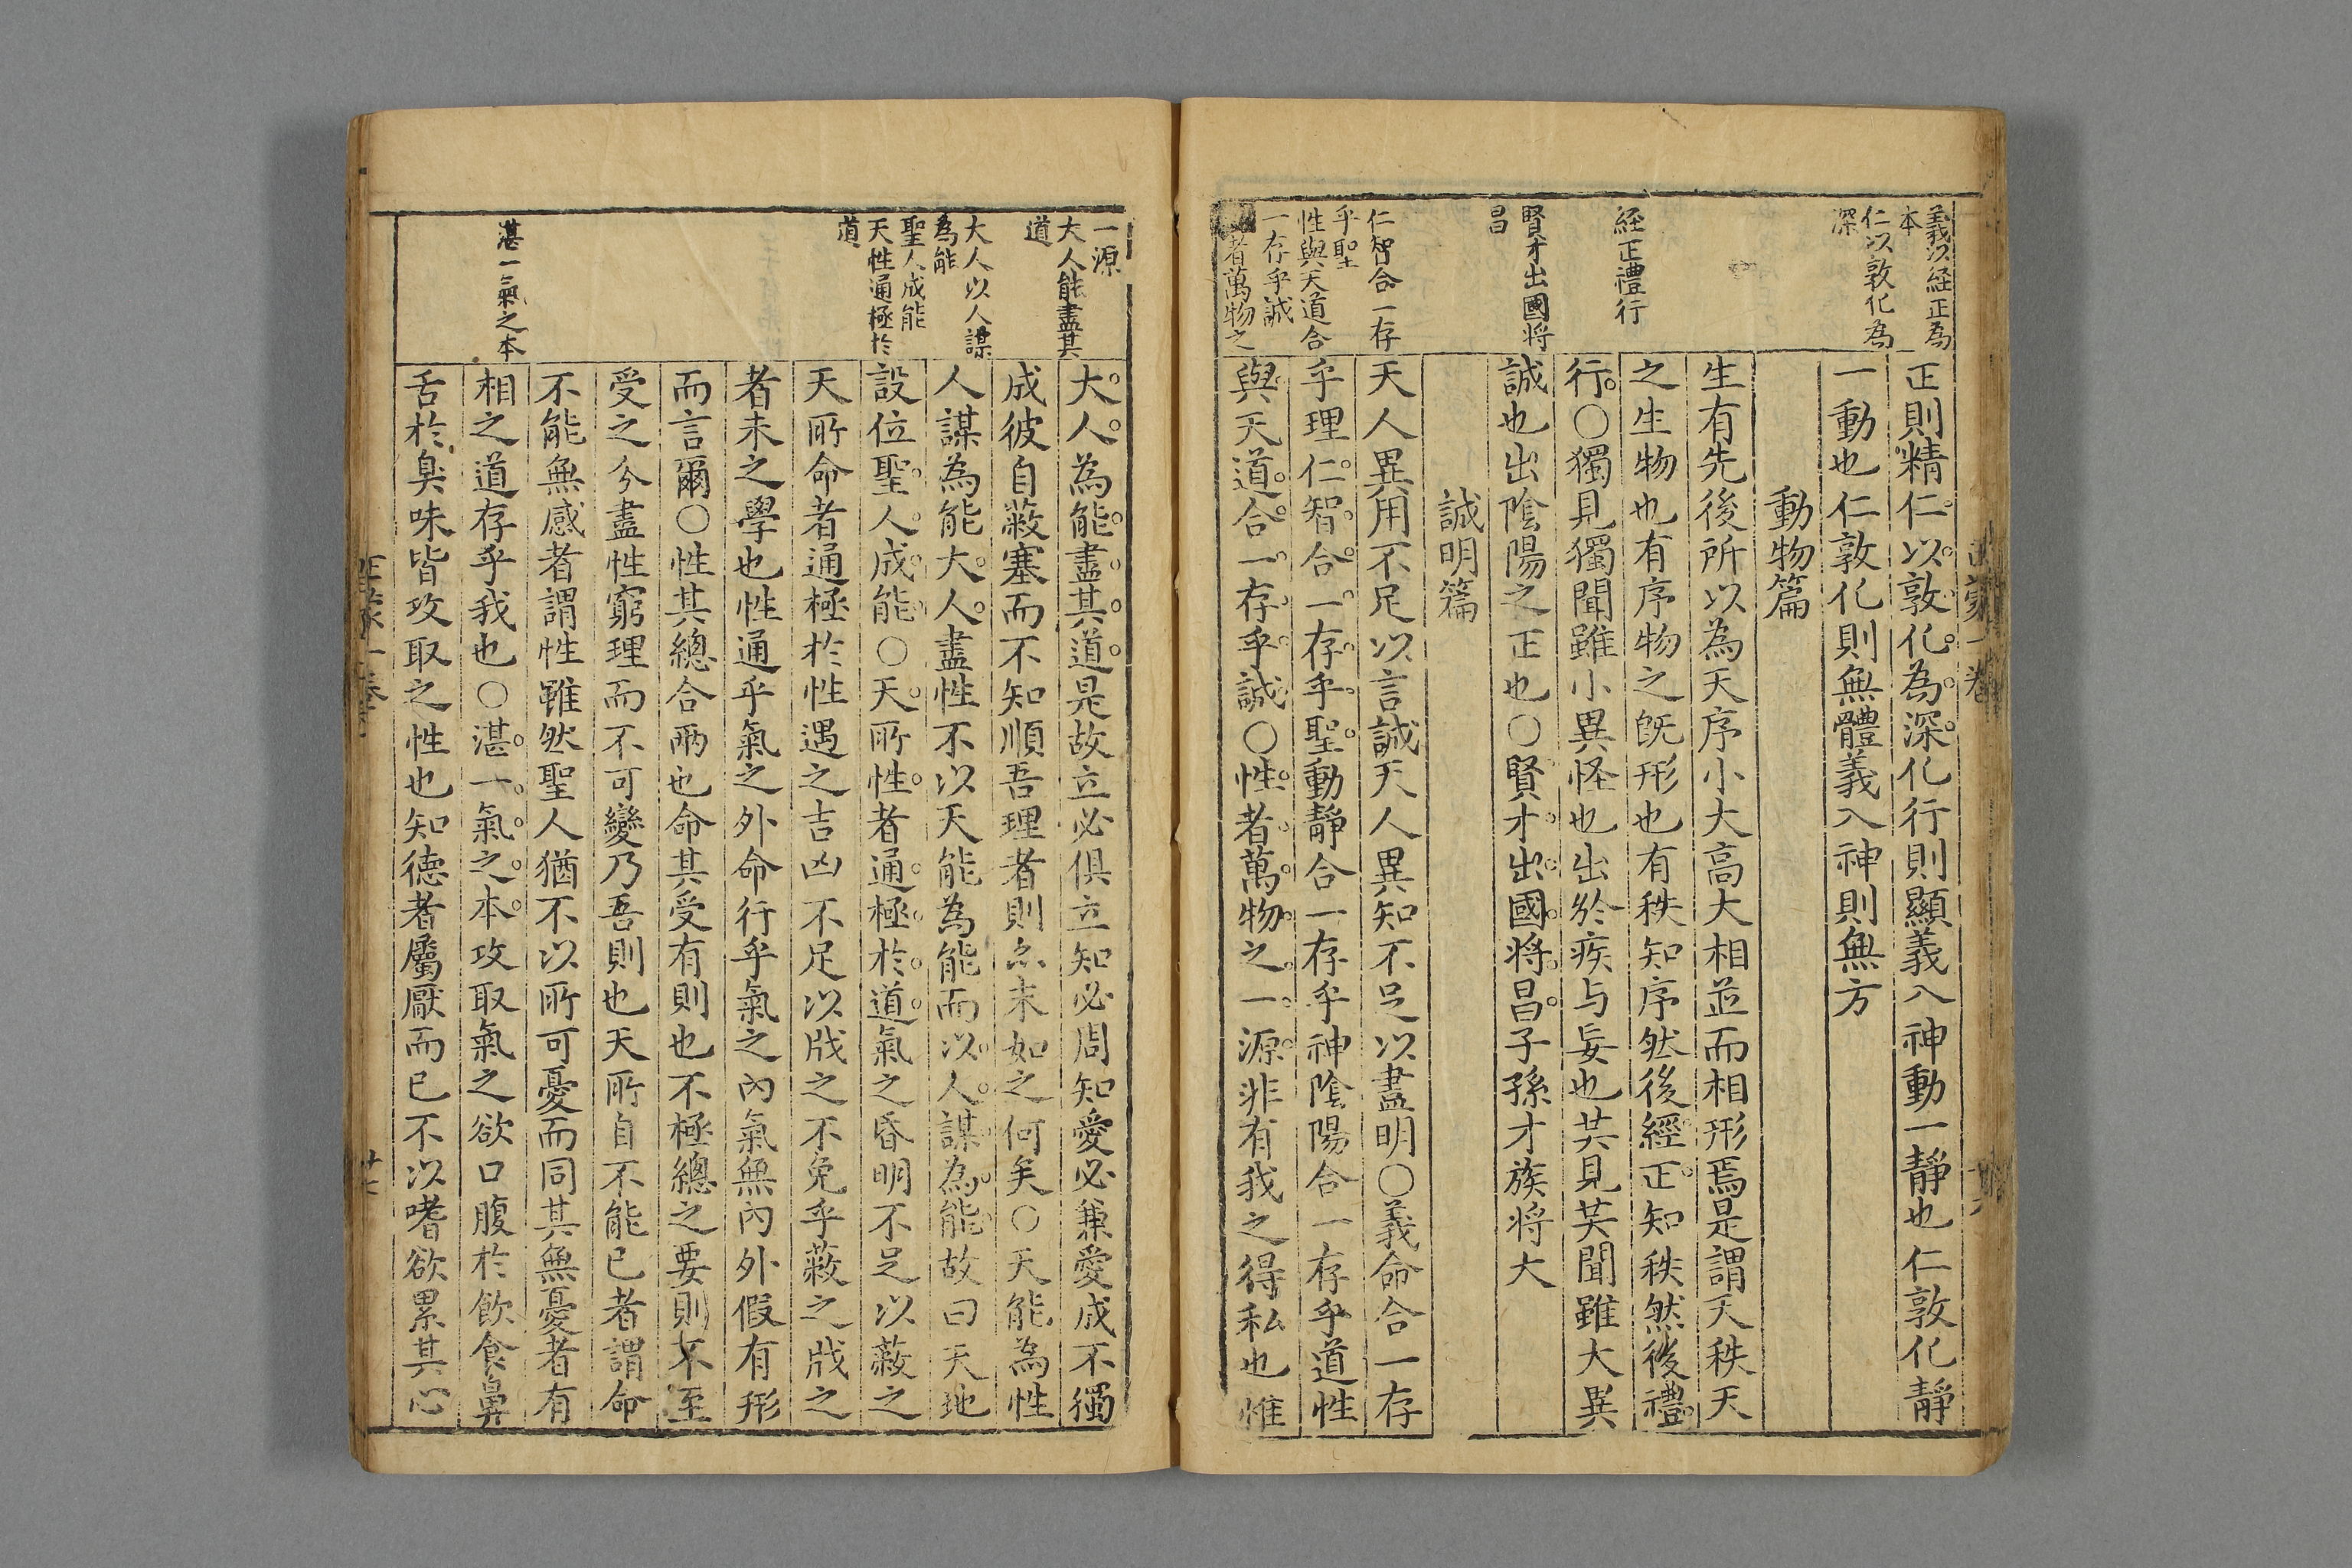 義以経正為
本
仁以敦化為
深
経正禮行
賢才出國将
昌
仁智合一存
乎聖
性與天道合
一存乎誠
者萬物之
正則精仁以敦化為深化行則顯義入神動一靜也仁敦化靜
一動也仁敦化則無體義入神則無方
動物篇
生有先後所以為天序小大高大相並而相形焉是謂天秩天
之生物也有序物之既形也有秩知序然後經正知秩然後禮
行○獨見獨聞雖小異怪也出於疾与妄也共見共聞雖大異
誠也出陰陽之正也○賢才出國將昌子孫才族将大
誠明篇
天人異用不足以言誠天人異知不足以盡明○義命合一存
乎理仁智合一存乎聖動靜合一存乎神陰陽合一存乎道性
與天道合一存乎誠○性者萬物之一源非有我之得私也惟
一源
大人能盡其
道
大人以人謀
為能
聖人成能
天性通極於
道
湛一氣之本
大人為能盡其道是故立必俱立知必周知愛必兼愛成不獨
成彼自蔽塞而不知順吾理者則亦未如之何矣○天能為性
人謀為能大人盡性不以天能為能而以人謀為能故曰天地
設位聖人成能○天所性者通極於道氣之昏明不足以蔽之
天所命者通極於性遇之吉凶不足以戕之不免乎蔽之戕之
者未之學也性通乎氣之外命行乎氣之內氣無內外假有形
而言爾○性其總合兩也命其受有則也不極總之要則不至
受之分盡性窮理而不可變乃吾則也天所自不能已者謂命
不能無感者謂性雖然聖人猶不以所可憂而同其無憂者有
相之道存乎我也○湛一氣之本攻取氣之欲口腹於飲食鼻
舌於臭味皆攻取之性也知德者屬厭而已不以嗜欲累其心